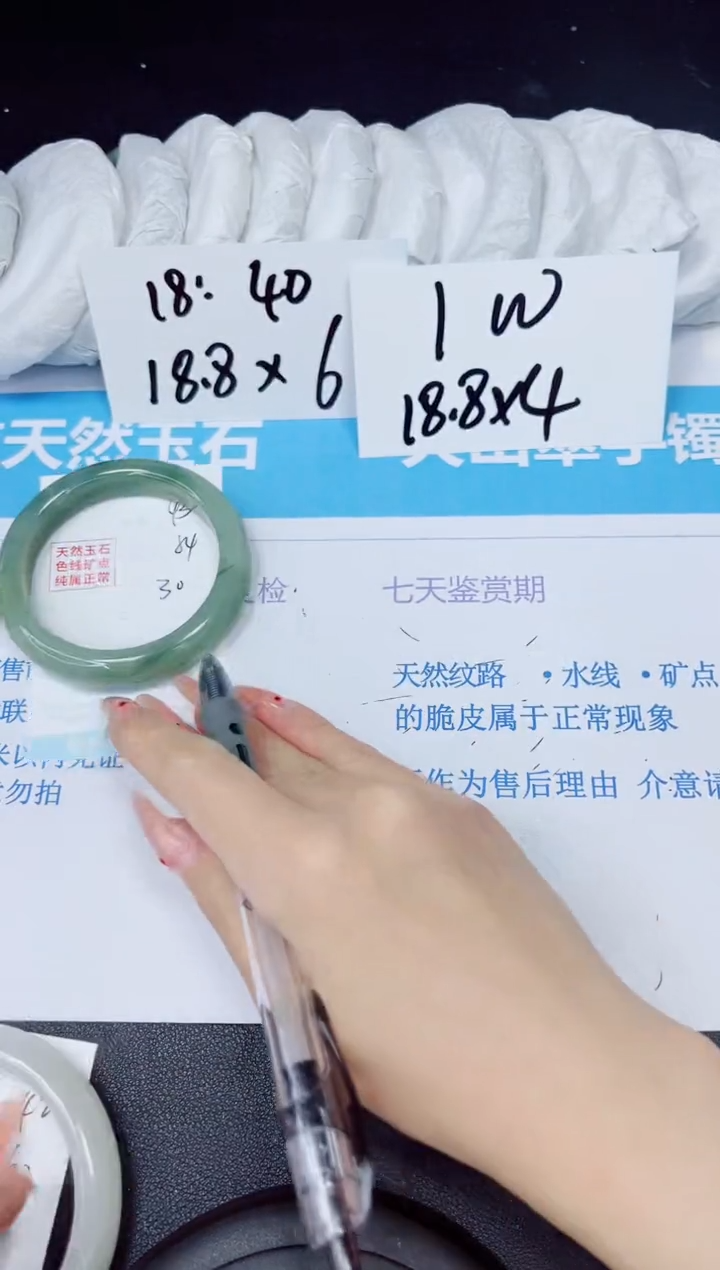 18: 40
18.8 × 6
1 W
18.8×4
天然玉石
手镯
43
84
30
天然玉石
色蜡矿点
纯属正常
检
七天鉴赏期
天然纹路 •水线 •矿点
的脆皮属于正常现象
作为售后理由 介意请
售
联
勿拍